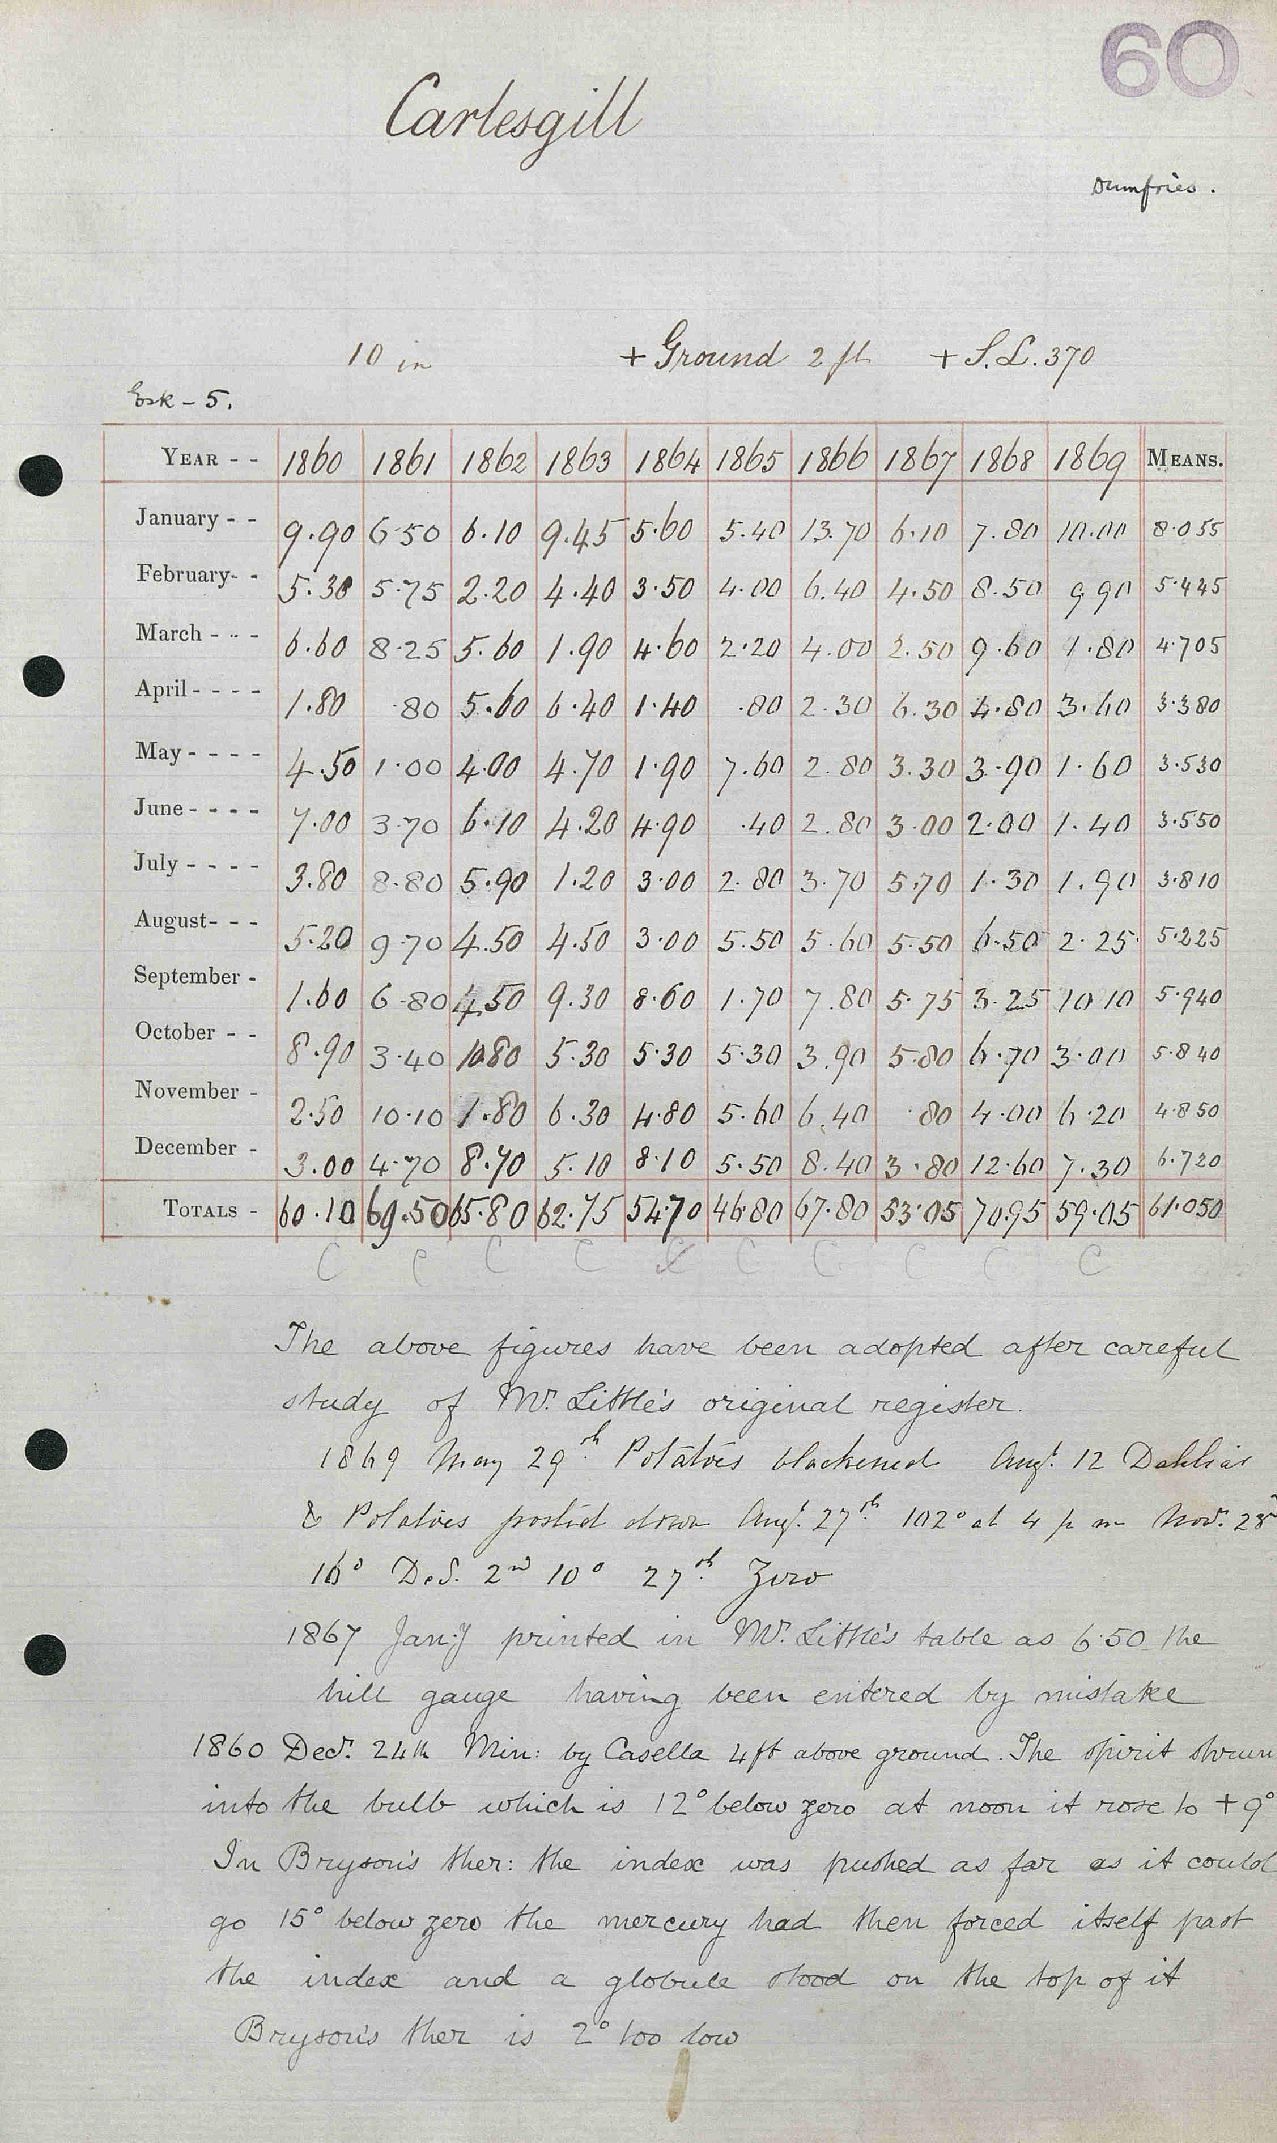 60
Carlesgill
Dumfries.
10 in + Ground 2 ft + S.L. 370
Esk - 5.
YEAR - - 1860 1861 1862 1863 1864 1865 1866 1867 1868 1869 MEANS.
January - - 9.90 6.50 6.10 9.45 5.60 5.40 13.70 6.10 7.80 10.00 8.055
February - - 5.30 5.75 2.20 4.40 3.50 4.00 6.40 4.50 8.50 9 90 5.445
March - - - 6.60 8.25 5.60 1.90 4.60 2.20 4.00 2.50 9.60 1.80 4.705
April - - - - 1.80 .80 5.60 6.40 1.40 .80 2.30 6.30 4.80 3.60 3.380
May - - - - 4.50 1.00 4.00 4.70 1.90 7.60 2.80 3.30 3.90 1.60 3.530
June - - - - 7.00 3.70 6.10 4.20 4.90 .40 2.80 3.00 2.00 1.40 3.550
July - - - - 3.80 8.80 5.90 1.20 3.00 2.80 3.70 5.70 1.30 1.90 3.810
August - - - 5.20 9.70 4.50 4.50 3.00 5.50 5.60 5.50 6.50 2.25 5.225
September - 1.60 6.80 4.50 9.30 8.60 1.70 7.80 5.75 3.25 10 10 5.940
October - - 8.90 3.40 10.80 5.30 5.30 5.30 3.90 5.80 6.70 3.00 5.840
November - 2.50 10.10 1.80 6.30 4.80 5.60 6.40 .80 4.00 6.20 4.850
December - 3.00 4.70 8.70 5.10 8.10 5.50 8.40 3.80 12.60 7.30 6.720
TOTALS - 60.10 69.50 65.80 62.75 54.70 46.80 67.80 53.05 70.95 59.05 61.050
C C C C C C C C C C
The above figures have been adopted after careful
study of Mr. Little's original register.
1869 May 29th Potatoes blackened Augt. 12 Dahlias
& Potatoes frosted down Augt. 27th 102° at 4 p m Nov. 28
16° Dec. 2nd 10° 27th Zero
1867 Jany printed in Mr. Little's table as 6.50 the
hill gauge having been entered by mistake
1860 Decr. 24th Min: by Casella 4ft above ground. The spirit shrun
into the bulb which is 12° below zero at noon it rose to + 9°
In Bryson's ther: the index was pushed as far as it could
go 15° below zero the mercury had then forced itself past
the index and a globule stood on the top of it
Bryson's ther is 2° too low